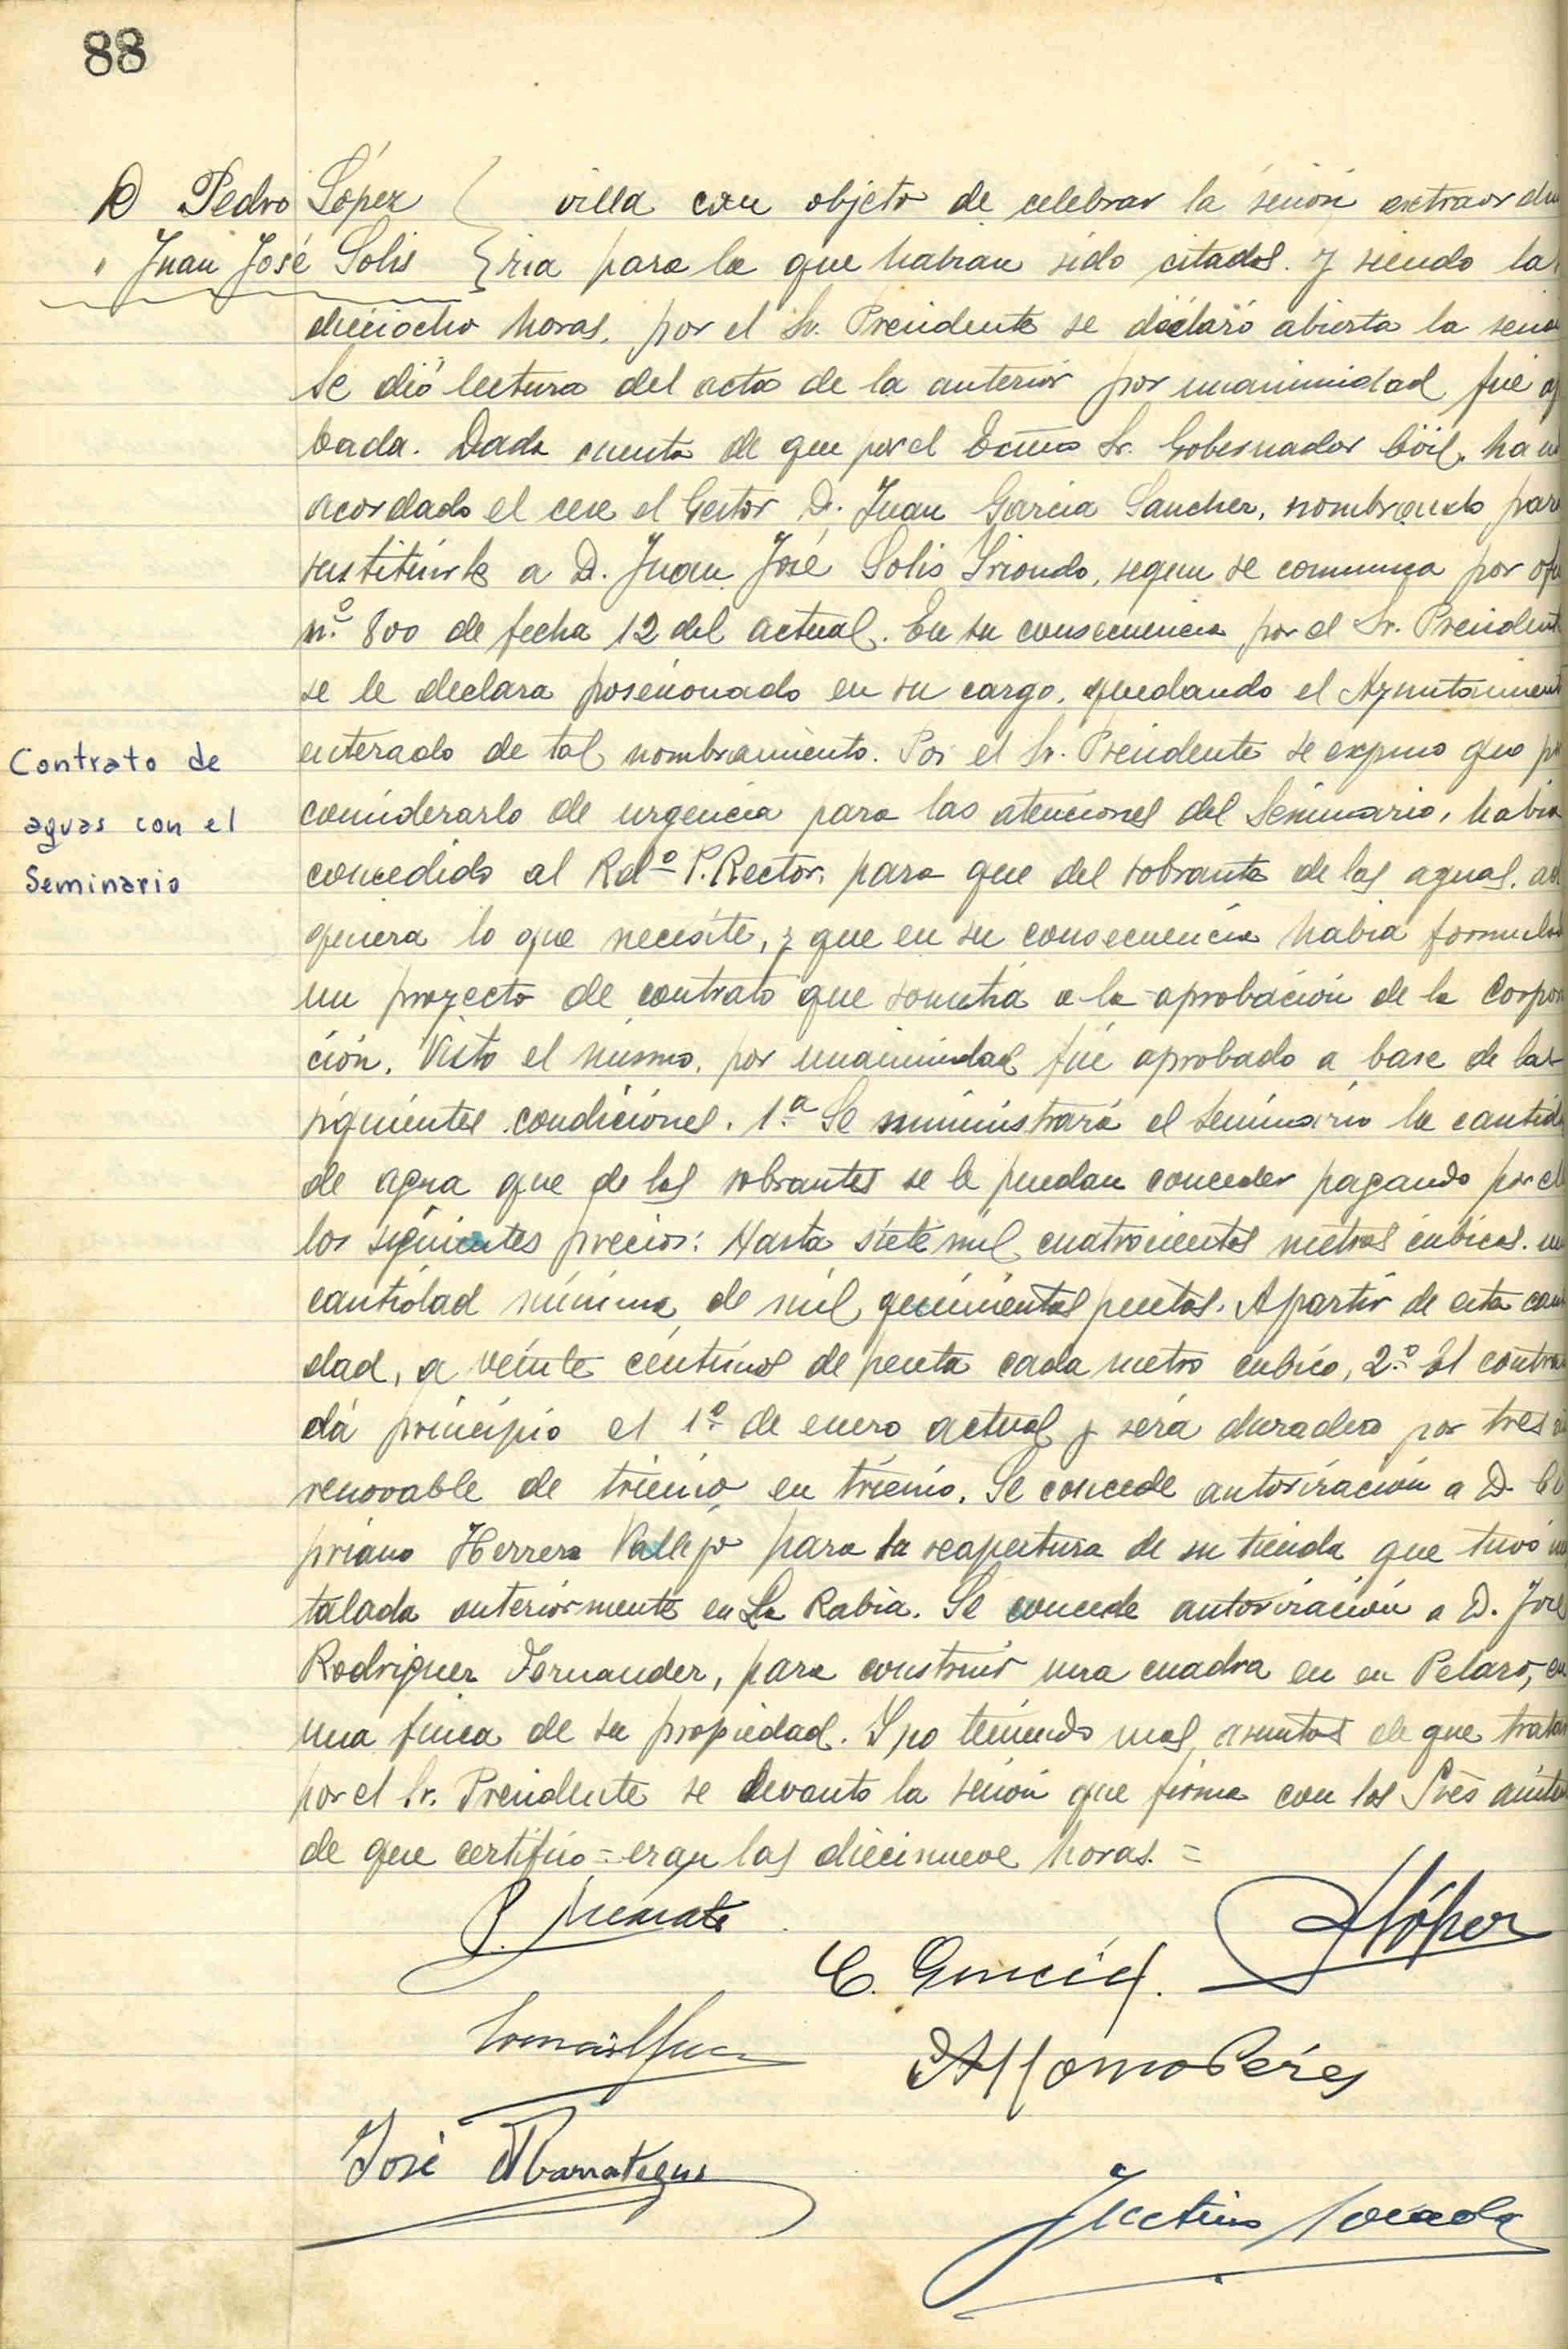 88
D Pedro López villa con objeto de celebrar la sesión extraordin
" Juan José Solis ria para la que habian sido citados. y siendo las
dieciocho horas, por el Sr. Presidente se declaró abierta la sesio
Se dió lectura del acta de la anterior por unanimidad fue ap
bada. Dada cuenta de que por el Excmo Sr. Gobernador Civil, ha
acordado el cese el Gestor D. Juan Garcia Sanchez, nombrando par
sustituirle a D. Juan José Solis Iriondo, segun se comunica por ofi
n.º 800 de fecha 12 del actual. En su consecuencia por el Sr. Presidente
se le declara posesionado en su cargo, quedando el Ayuntamient
enterado de tal nombramiento. Por el Sr. Presidente se expuso que p
Contrato de
aguas con el
Seminario
considerarlo de urgencia para las atenciones del Seminario, habia
concedido al Rdº P. Rector, para que del sobrante de las aguas, ad
quiera lo que necesite, y que en su consecuencia habia formulad
un proyecto de contrato que sometia a la aprobación de la Corpora
ción. Visto el mismo, por unanimidad fué aprobado a base de las
siguientes condiciones. 1.ª Se suministrará el Seminario la cantid
de agua que de los sobrantes se le puedan conceder pagando por el
los siguientes precios: Hasta siete mil cuatrocientos metros cúbicos. un
cantidad minima de mil quinientas pesetas. A partir de esta can
dad, a veinte céntimos de peseta cada metro cubico, 2.º El contra
dá principio el 1º de enero actual y será duradero por tres
renovable de trienio en trienio. Se concede autorización a D. Ci
priano Herrera Vallejo para la reapertura de su tienda que tuvo ins
talada anteriormente en La Rabia. Se concede autorización a D. José
Rodriguez Fernandez, para construir una cuadra en en Peraro, en
una finca de su propiedad. Y no teniendo mas asuntos de que tratar
por el Sr. Presidente se levanto la sesión que firma con los Sres asiste
de que certifico = eran las diecinueve horas. =
C. García
P López
Alfonso Peréz
José